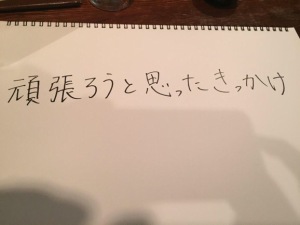 頑張ろうと思ったきっかけ